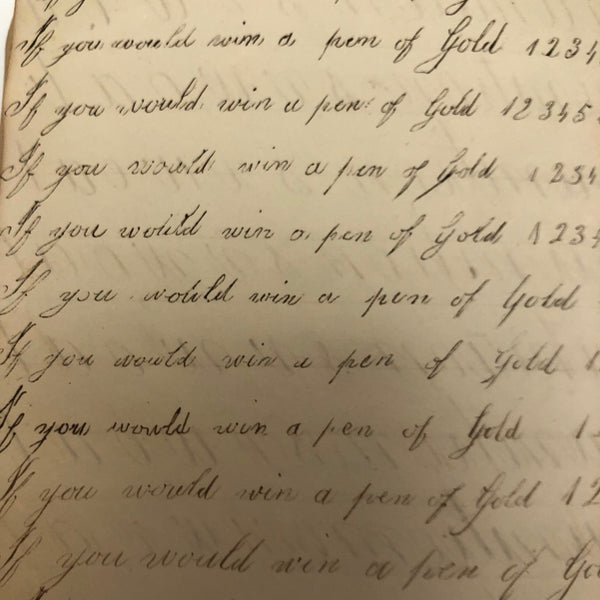 If you would win a pen of Gold 1234
If you would win a pen of Gold 12345
If you would win a pen of Gold 1234
If you would win a pen of Gold 1234
If you would win a pen of Gold
If you would win a pen of Gold 1
If you would win a pen of Gold 1
If you would win a pen of Gold 12
If you would win a pen of Go